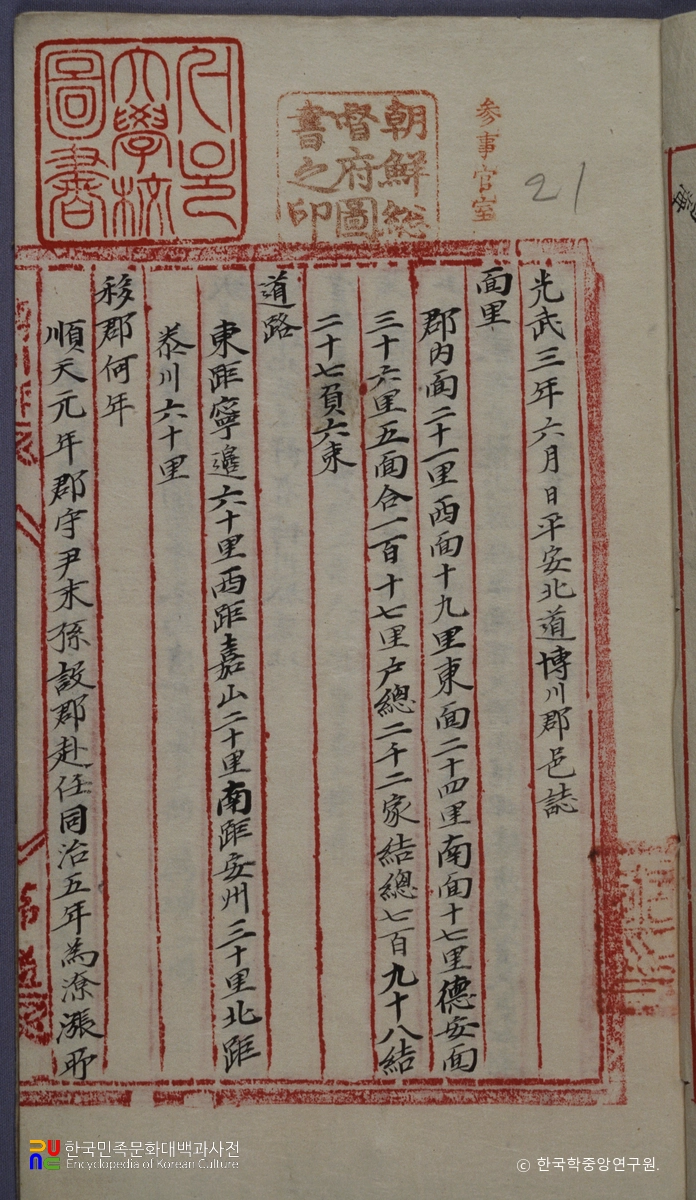 서울
大學校
圖書
朝鮮総
督府圖
書之印
参事官室
21
光武三年六月日平安北道博川郡邑誌
面里
郡內面二十一里西面十九里東面二十四里南面十七里德安面
三十六里五面合一百十七里戶總二千二家結總七百九十八結
二十七負六束
道路
東距寧邉六十里西距嘉山二十里南距安州三十里北距
泰川六十里
移郡何年
順天元年郡守尹末孫設郡赴任同治五年為潦漲所
한국민족문화대백과사전
Encyclopedia of Korean Culture
© 한국학중앙연구원.